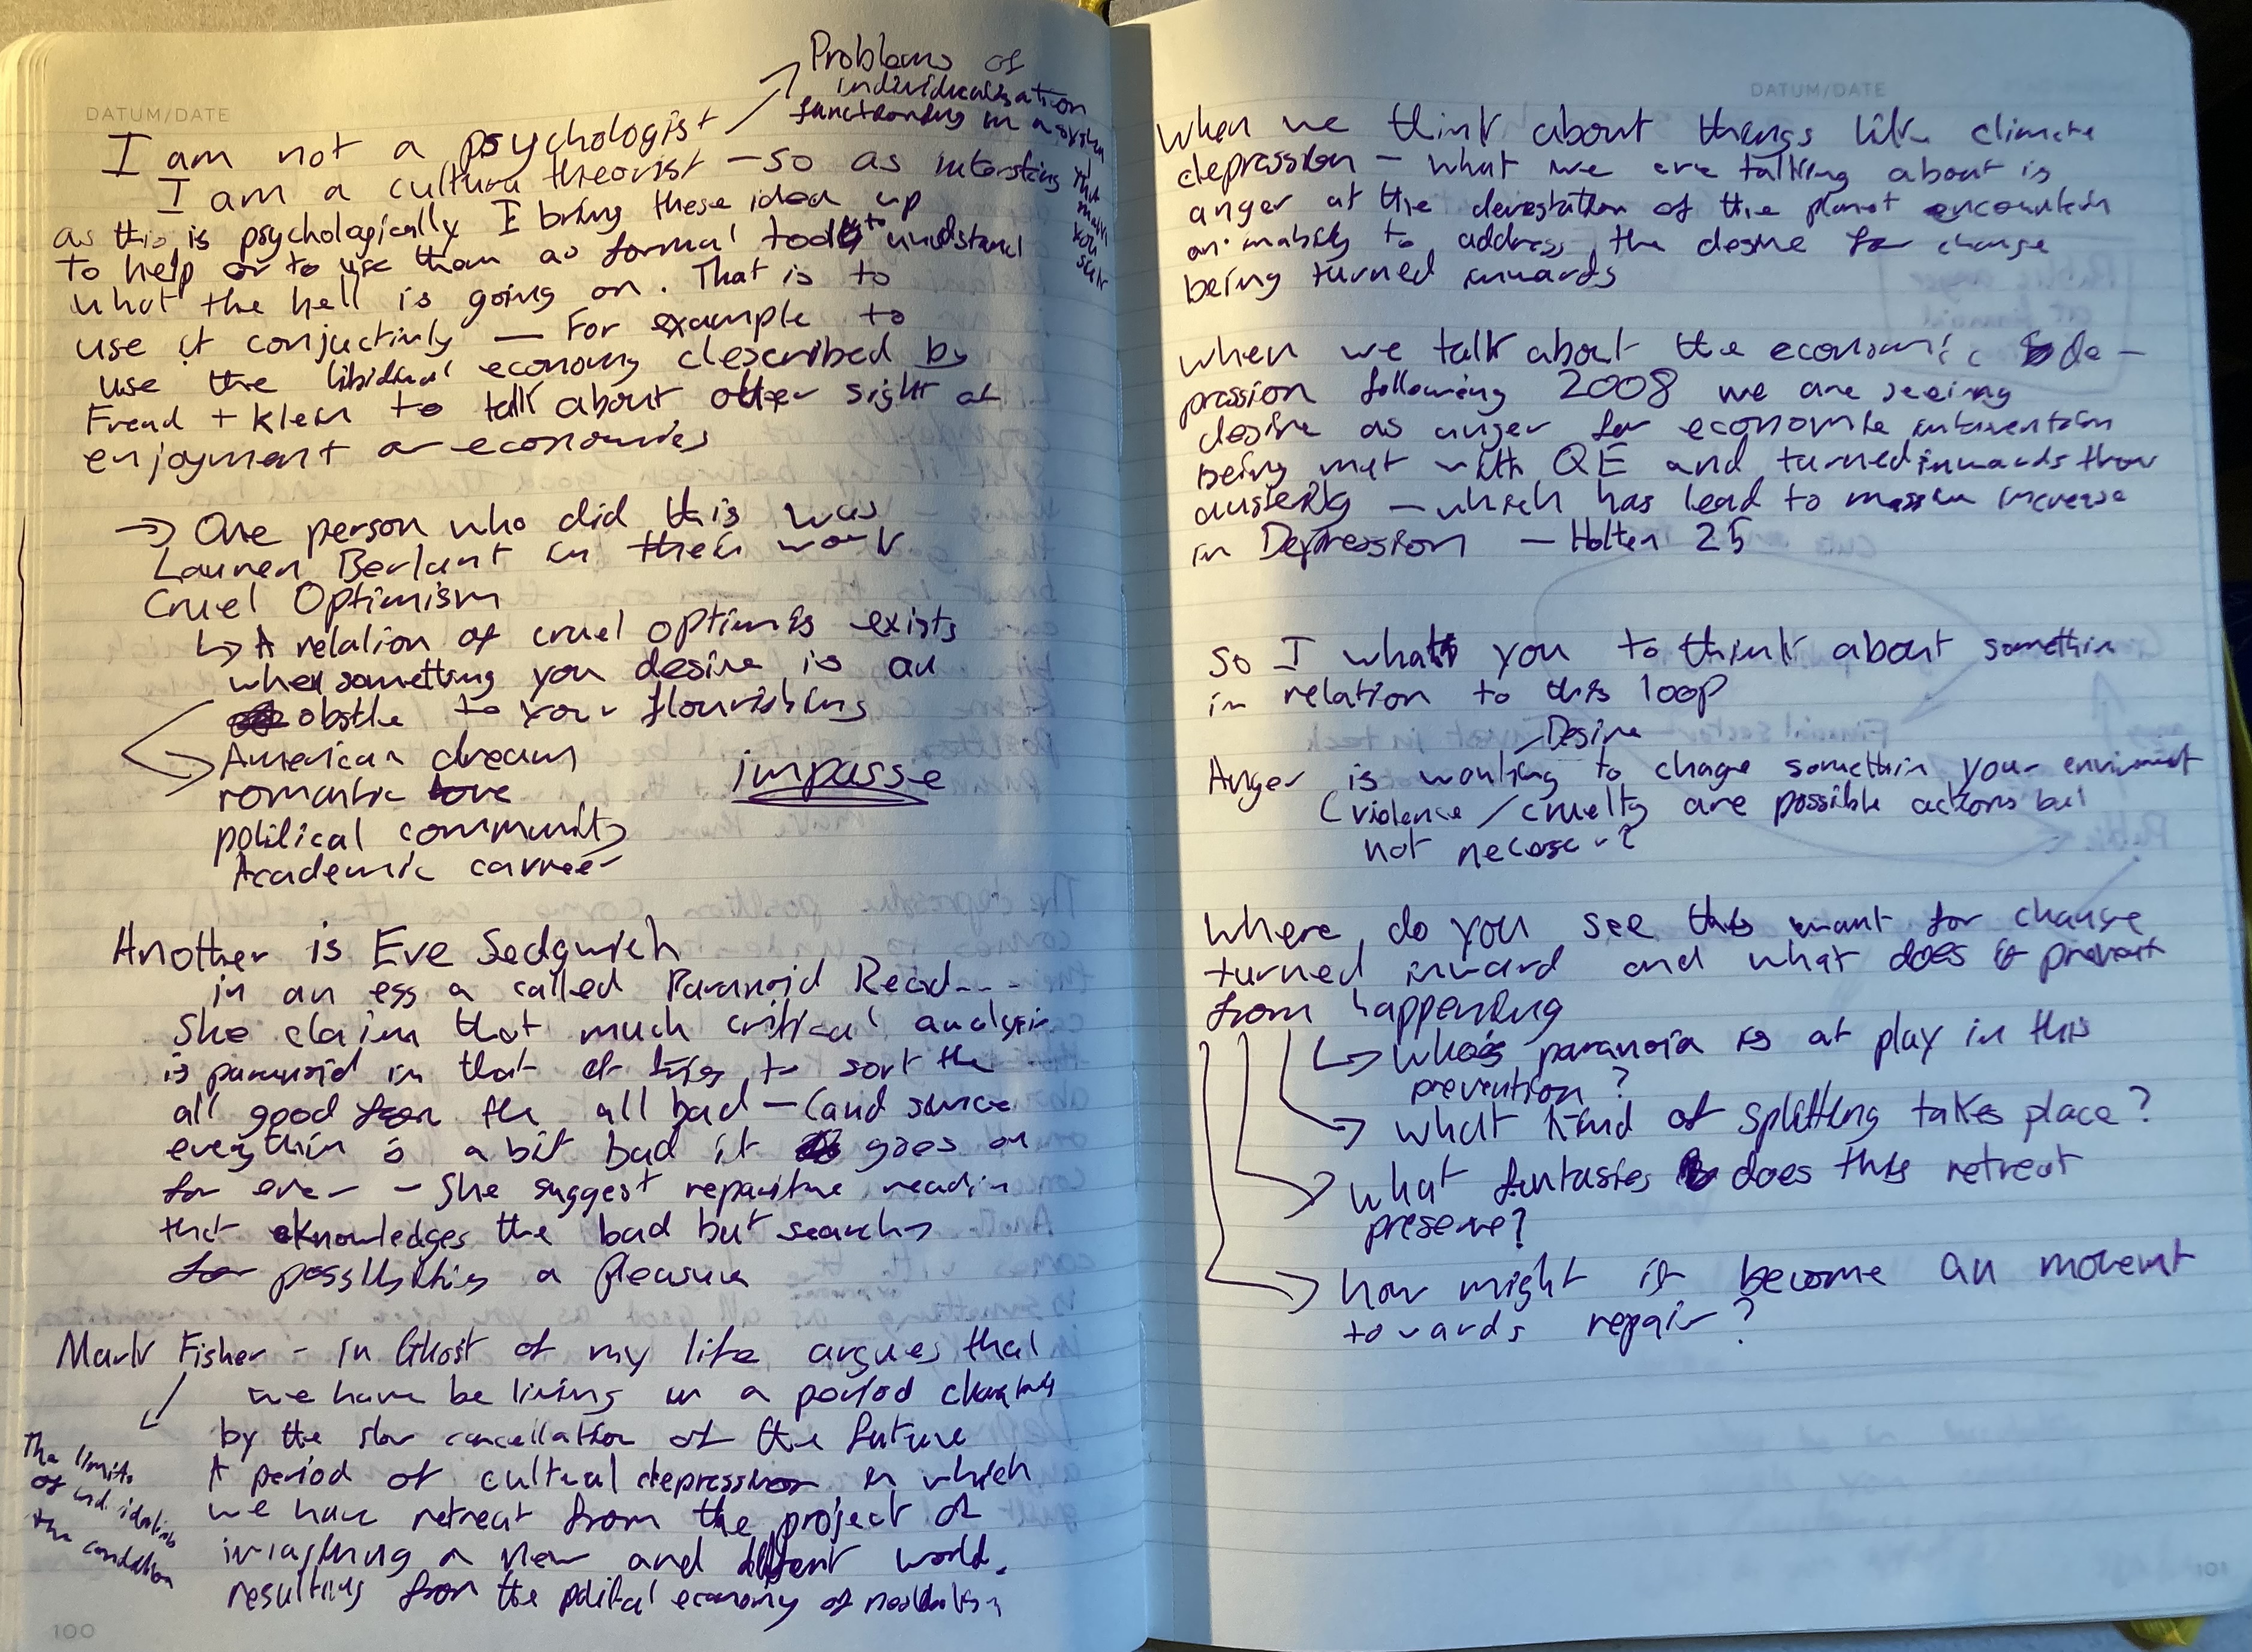 Problems of
individualisation
functioning in a system
that
make
you
sick
DATUM/DATE
I am not a psychologist
I am a culture theorist – so as intersting
as this is psychologically I bring these idea up
to help or to use them as formal tools to undstand
what the hell is going on. That is to
use it conjuctivly — For example to
use the libidinal economy described by
Freud + Klein to talk about other sight of
enjoyment or economies
→ One person who did this was
Lauren Berlant in their work
Cruel Optimism
↳ A relation of cruel optimis exists
when something you desire is an
obstcle to your flourishing
American dream
romantic love
impasse
political community
Academic carreer
Another is Eve Sedgwick
in an ess a called Paranoid Read...
She claim that much critical analysis
is paranoid in that it trys to sort the
all good from the all bad – (and since
everythin is a bit bad it goes on
for ever – She suggest reparitive readin
that aknowledges the bad but searchs
for possibilities a pleasure
Mark Fisher – in Ghost of my life argues that
we have be living in a period
by the slow cancellation of the future
A period of cultural depression in which
we have retreat from the project of
imagining a new and different world.
resulting from the political economy of
The limits
of
the condition
100
DATUM/DATE
When we think about things like climate
depression – what we are talking about is
anger at the devestation of the planet encountein
an inability to address the desire for change
being turned inwards
when we talk about the economic de –
pression following 2008 we are seeing
desire as anger for economic intervention
being met with QE and turned inwards throu
austerity – which has lead to massive increase
in Depression – Holten 25
So I what you to think about somethin
in relation to this loop
Desire
Anger is wanting to change somethin your
(violence / cruelty are possible actions but
not
where do you see this want for change
turned inward and what does it prevent
from happening
↳ whos paranoia is at play in this
prevention?
→ what kind of splitting takes place?
→ what funtasies does this retreat
preserve?
→ how might it become an movemt
towards repair?
101